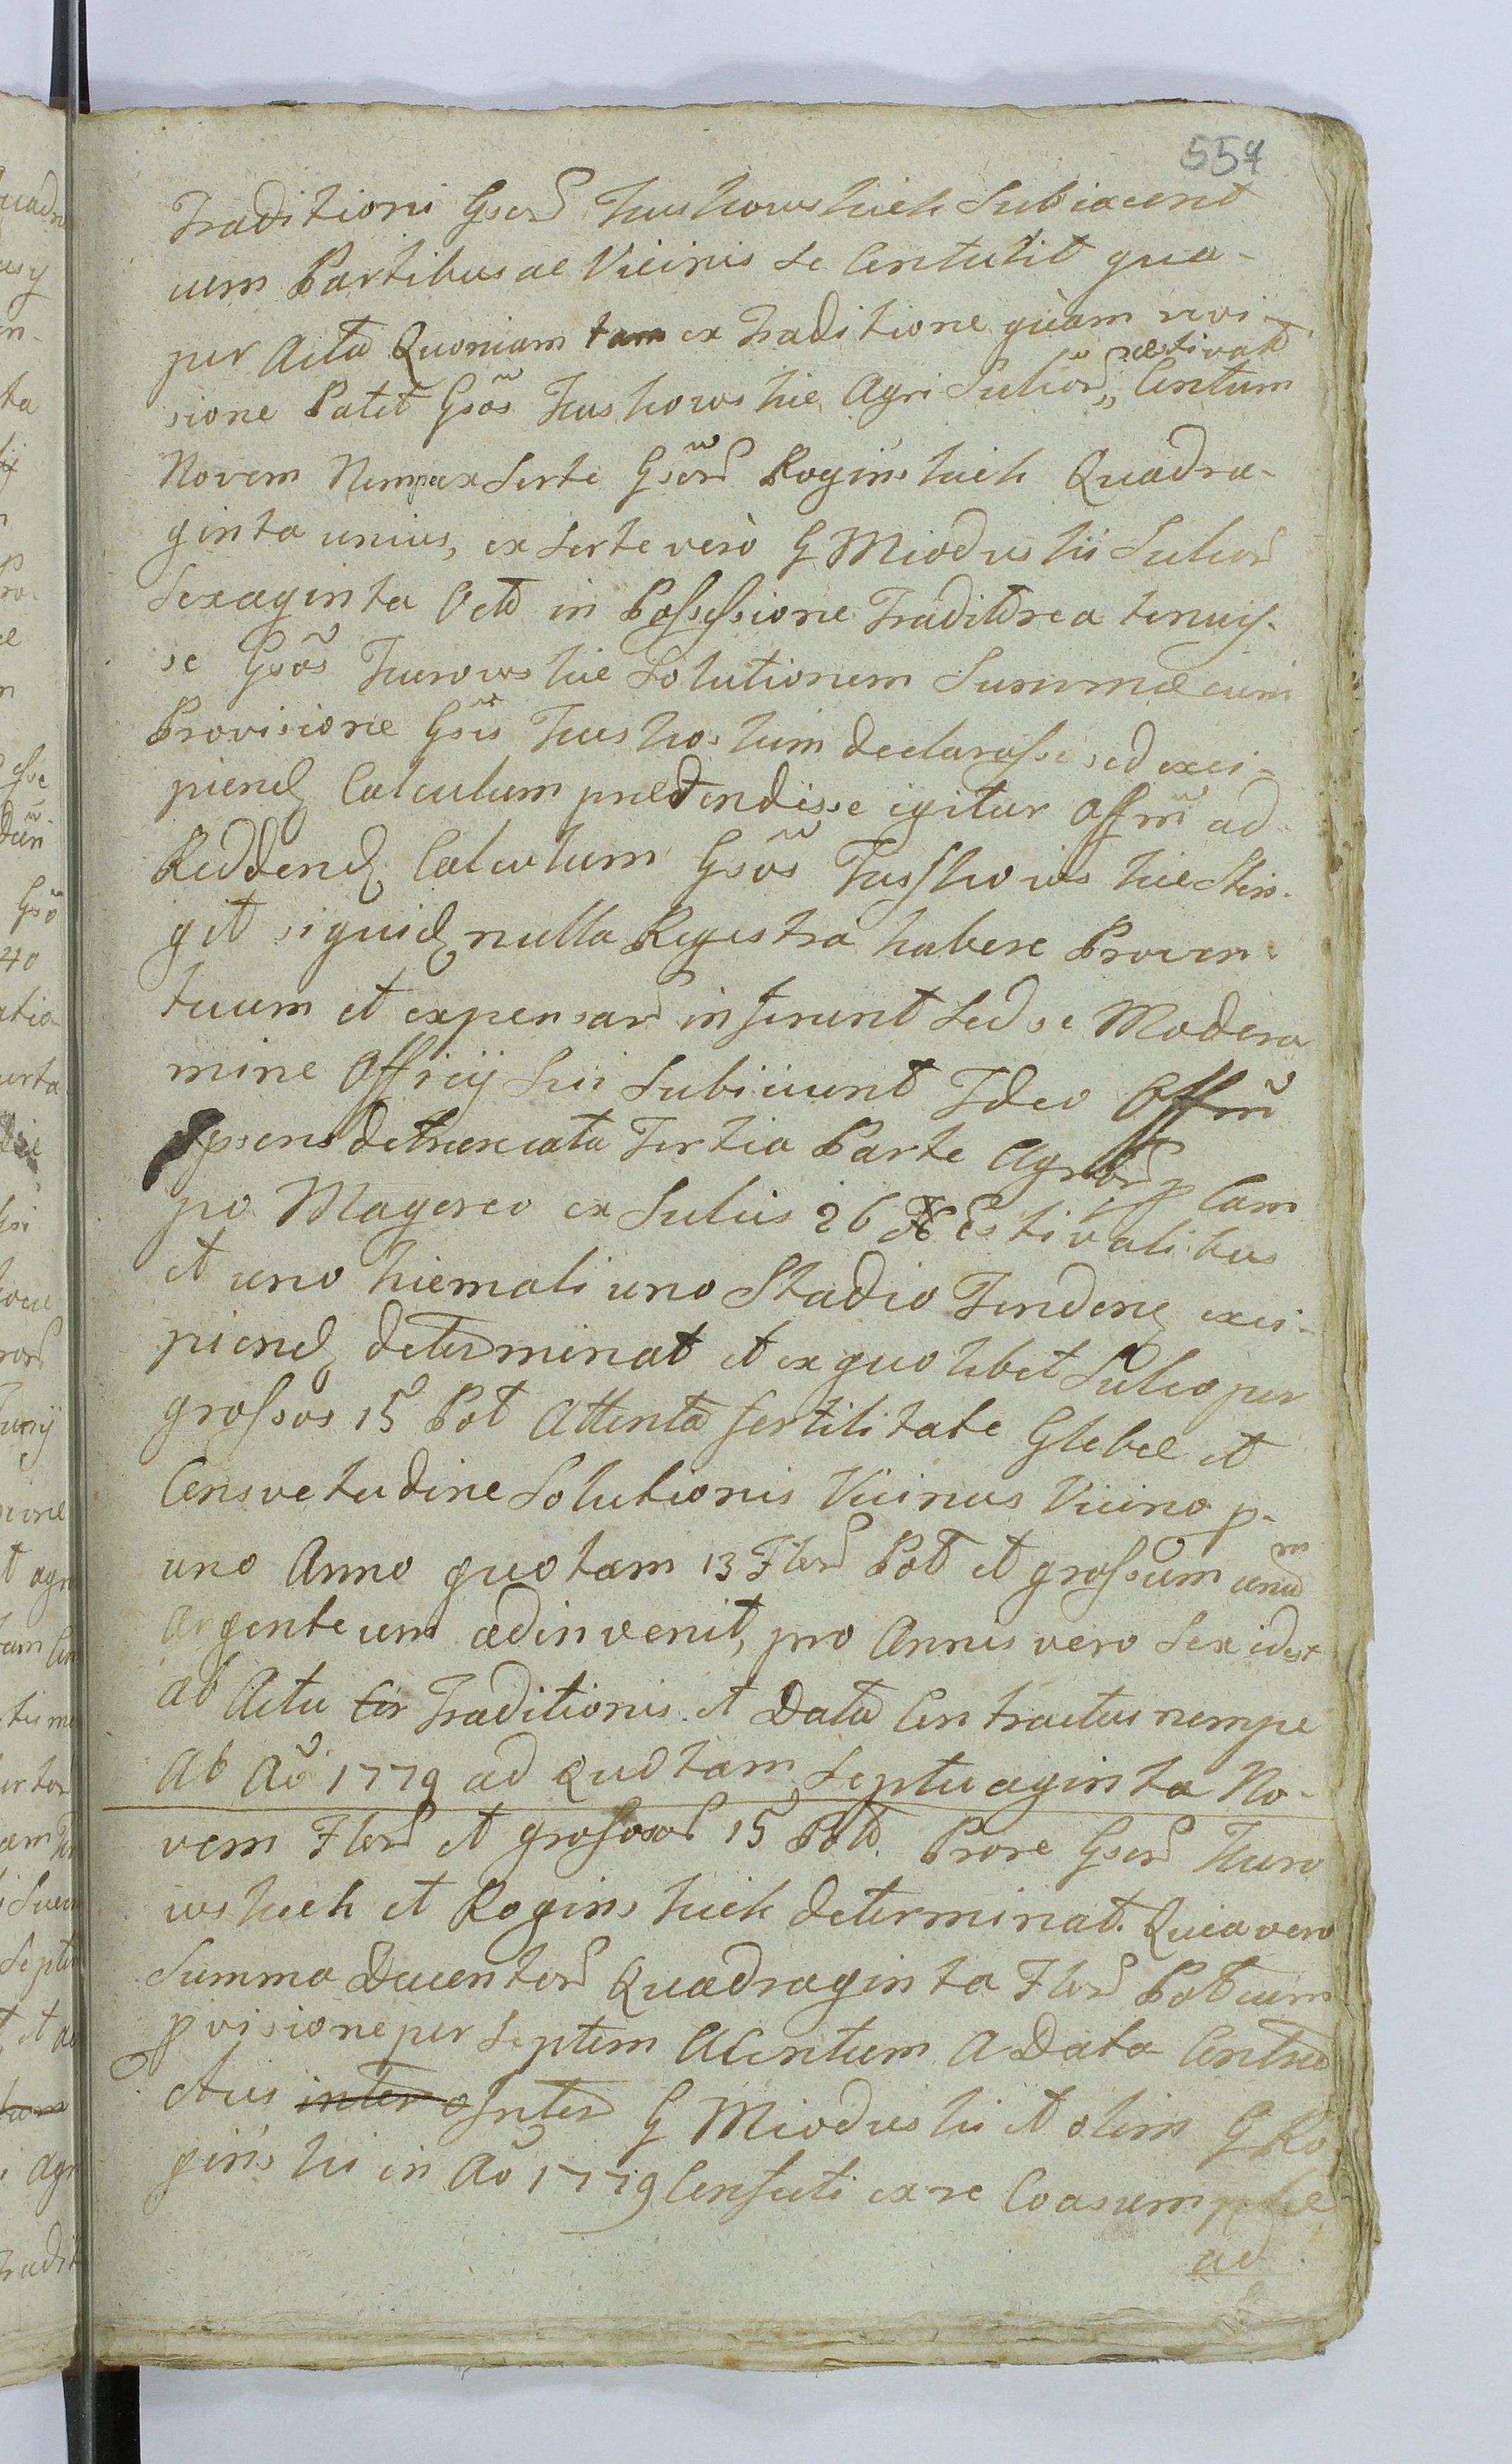 554
Traditioni Gsor Kuskowskich Subiacent
cum Partibus ac Vicinis se Contulit qua-
per Actu Quoniam tam ex Traditione quam revi-
sione Patet Gsos Kuskowskie Agri Sulcor „ aestivalt Centum
Novem Nempe ex Sorte Gsor Roginskich Quadra-
ginta unius, ex Sorte verò G Mioduski Sulcor
Sexaginta Octo in Possessione Traditorea tenuis-
se Gsos Kurowskie Solutionem Summae cum
Provisione Gsis Kuskoskim declarasse sed exci-
piend Calculum praetendisse igitur Offm ad
Reddend Calculum Gsos Kusskowskie Strin-
git siquid nulla Regestra habere Proven-
tuum et expensar inferunt Sed se Modera
mine Officij Sui Subiiciunt Ideo Offm
psens detruncata Tertia Parte Agror p Cam
po Magereo ex Sulcis 26 AEstivalibus
et uno hiemali uno Stadio Tenden exci-
piend determinat et ex quolibet Sulco per
grossos 15 Pol Attenta fertilitate Glebae et
Consvetudine Solutionis Vicinus Vicino p-
uno Anno quotam 13 Flor Pol et grossum unum
Argenteum adinvenit, pro Annis vero Sex idest
ab Actu Traditionis et Data Contractus nempe
Ab Ao 1779 ad Quotam Septuaginta No-
vem Flor et grossor 15 Pol. Prore Gsor Kuro
wskich et Roginskich determinat. Quia vero
Summa Ducentor Quadraginta Flor Pol cum
pvisione per Septem A Centum A Data Contra
ctus inter Inter G Mioduski et olim G Ro
ginski in Ao 1779 Confecti ex re Coasumptae
ad